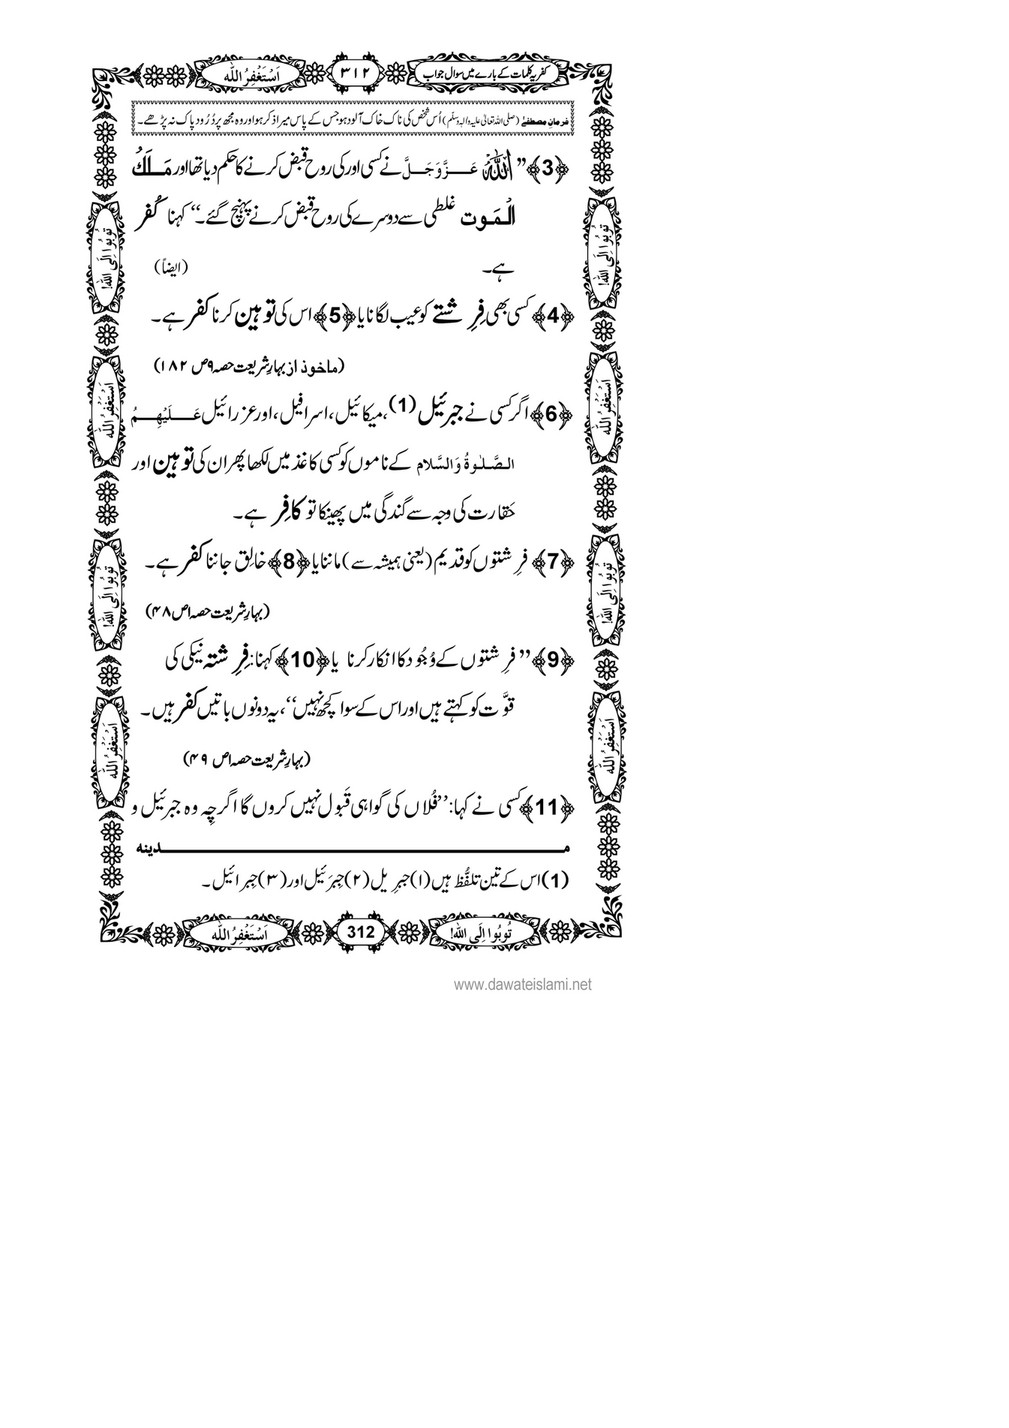 کفریہ کلمات کے بارے میں سوال جواب ۳۱۲ اَسْتَغْفِرُ اللّٰه
فرمانِ مصطفےٰ (صلی اللہ تعالیٰ علیہ والہ وسلم) اُس شخص کی ناک خاک آلود ہو جس کے پاس میرا ذکر ہو اور وہ مجھ پر دُرُود پاک نہ پڑھے۔
﴿3﴾ ’’اللّٰہ عَزَّوَجَلَّ نے کسی اور کی روح قبض کرنے کا حکم دیا تھا اور مَلَکُ
الْمَوت غلطی سے دوسرے کی روح قبض کرنے پہنچ گئے۔‘‘ کہنا کُفر
ہے۔ (ایضاً)
﴿4﴾ کسی بھی فِرِشتے کو عیب لگانا یا ﴿5﴾ اس کی توہین کرنا کفر ہے۔
(ماخوذ از بہارِ شریعت حصہ ۹ ص ۱۸۲)
﴿6﴾ اگر کسی نے جبرئیل (1)، میکائیل، اسرافیل، اور عزرائیل عَلَیْہِمُ
الصَّلٰوۃُ وَالسَّلام کے ناموں کو کسی کاغذ میں لکھا پھر ان کی توہین اور
حَقارت کی وجہ سے گندگی میں پھینکا تو کافِر ہے۔
﴿7﴾ فرِشتوں کو قدیم (یعنی ہمیشہ سے) ماننا یا ﴿8﴾ خالِق جاننا کفر ہے۔
(بہارِ شریعت حصہ ا ص ۴۸)
﴿9﴾ ’’فرِشتوں کے وُجُود کا انکار کرنا یا ﴿10﴾ کہنا: فِرِشتہ نیکی کی
قوَّت کو کہتے ہیں اور اس کے سوا کچھ نہیں‘‘، یہ دونوں باتیں کفر ہیں۔
(بہارِ شریعت حصہ ا ص ۴۹)
﴿11﴾ کسی نے کہا: ’’فُلاں کی گواہی قَبول نہیں کروں گا اگرچِہ وہ جبرئیل و
مدینہ
(1) اس کے تین تلفُّظ ہیں (۱) جبرِیل (۲) جِبرَئیل اور (۳) جِبرائیل۔
تُوبُوا اِلَی اللّٰہ! 312 اَسْتَغْفِرُ اللّٰه
تُوبُوا اِلَی اللّٰہ!
اَسْتَغْفِرُ اللّٰه
تُوبُوا اِلَی اللّٰہ!
اَسْتَغْفِرُ اللّٰه
تُوبُوا اِلَی اللّٰہ!
اَسْتَغْفِرُ اللّٰه
تُوبُوا اِلَی اللّٰہ!
اَسْتَغْفِرُ اللّٰه
www.dawateislami.net